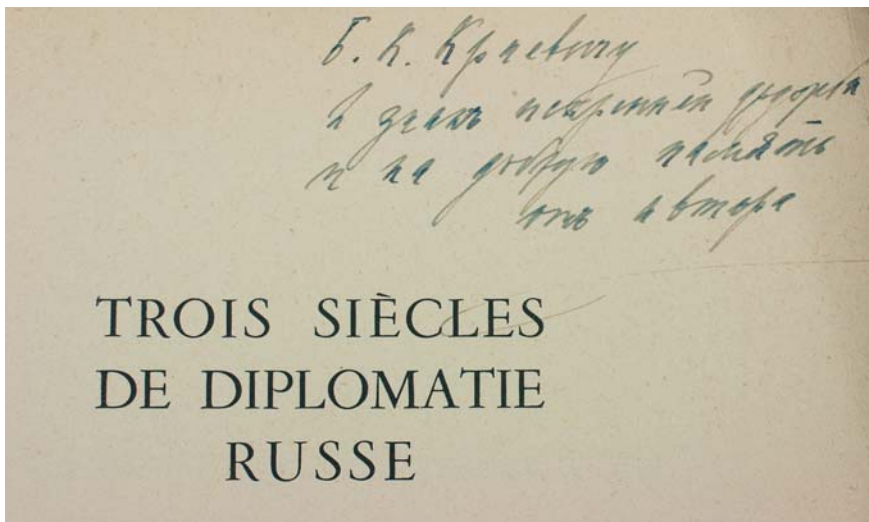 Б. К. Краевичу
в знакъ искренней дружбы
и на добрую память
отъ автора
TROIS SIÈCLES
DE DIPLOMATIE
RUSSE